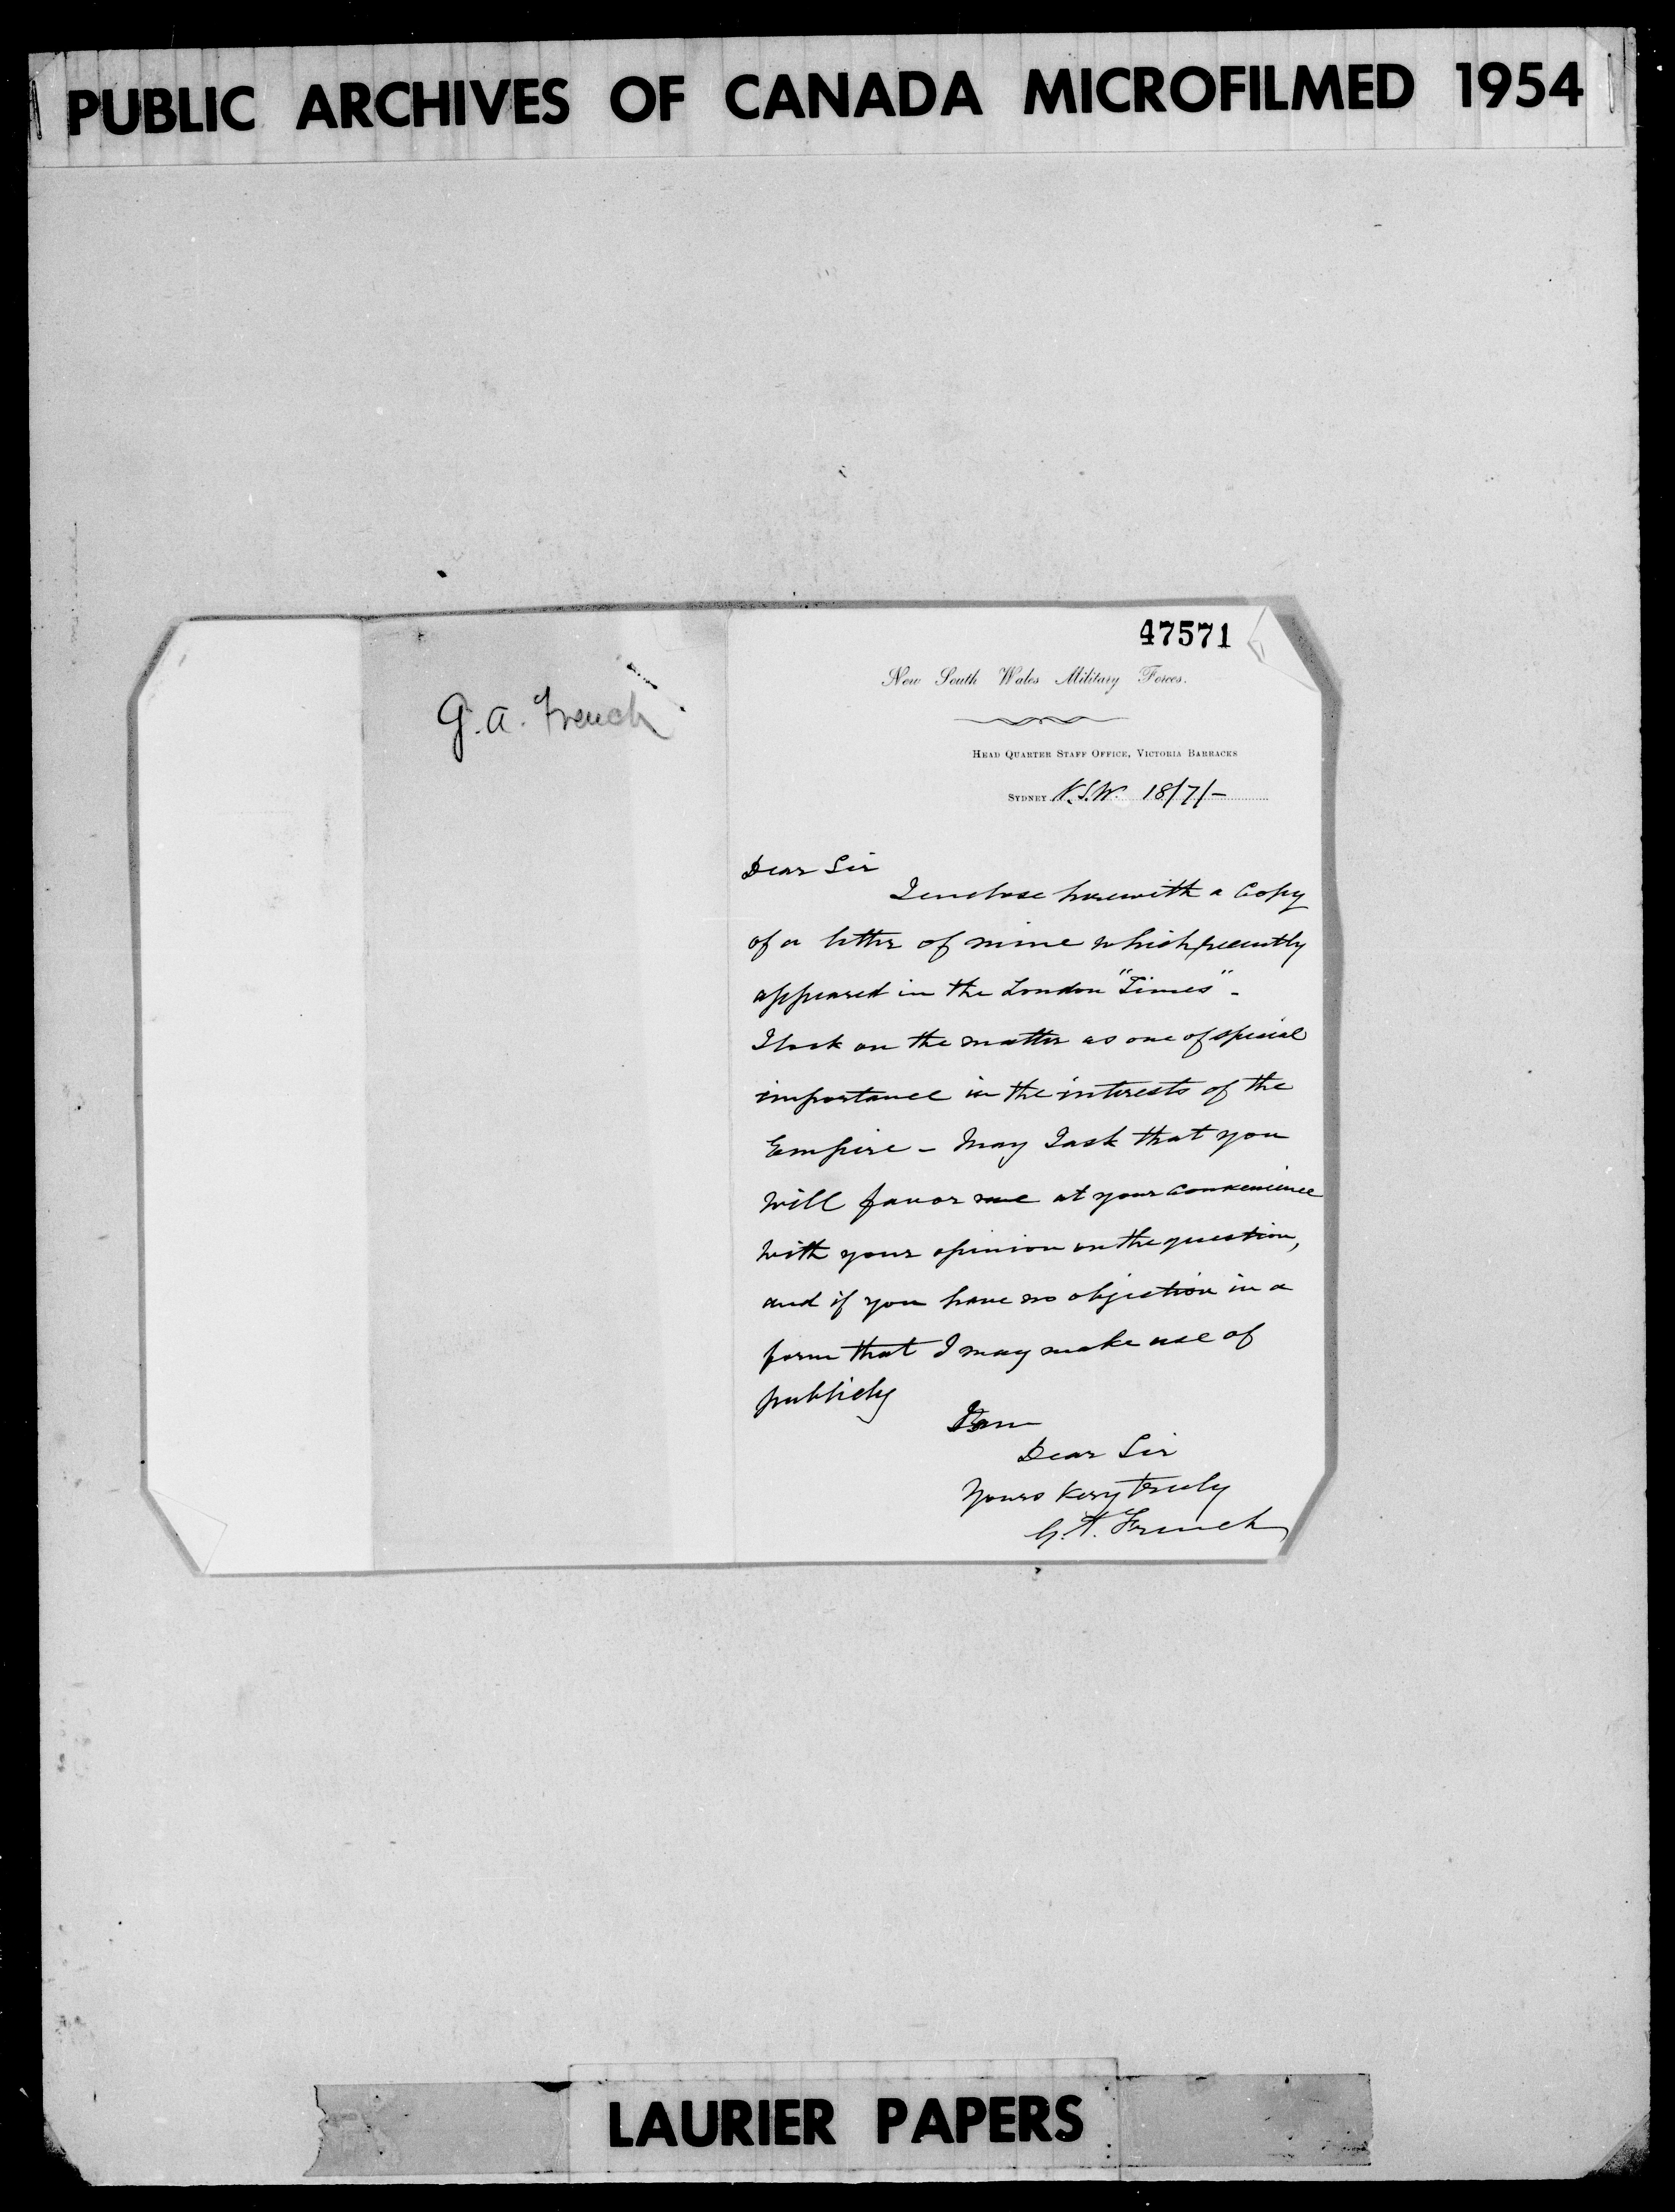 PUBLIC ARCHIVES OF CANADA MICROFILMED 1954
G. A. French
47571
New South Wales Military Forces.
HEAD QUARTER STAFF OFFICE, VICTORIA BARRACKS
SYDNEY N.S.W. 18/7/-
Dear Sir
I enclose herewith a Copy
of a letter of mine which recently
appeared in the London "Times" -
I look on the matter as one of special
importance in the interests of the
Empire - May I ask that you
will favor me at your convenience
with your opinion on the question,
and if you have no objection in a
form that I may make use of
publicly
I am
Dear Sir
Yours very truly
G. A. French
LAURIER PAPERS